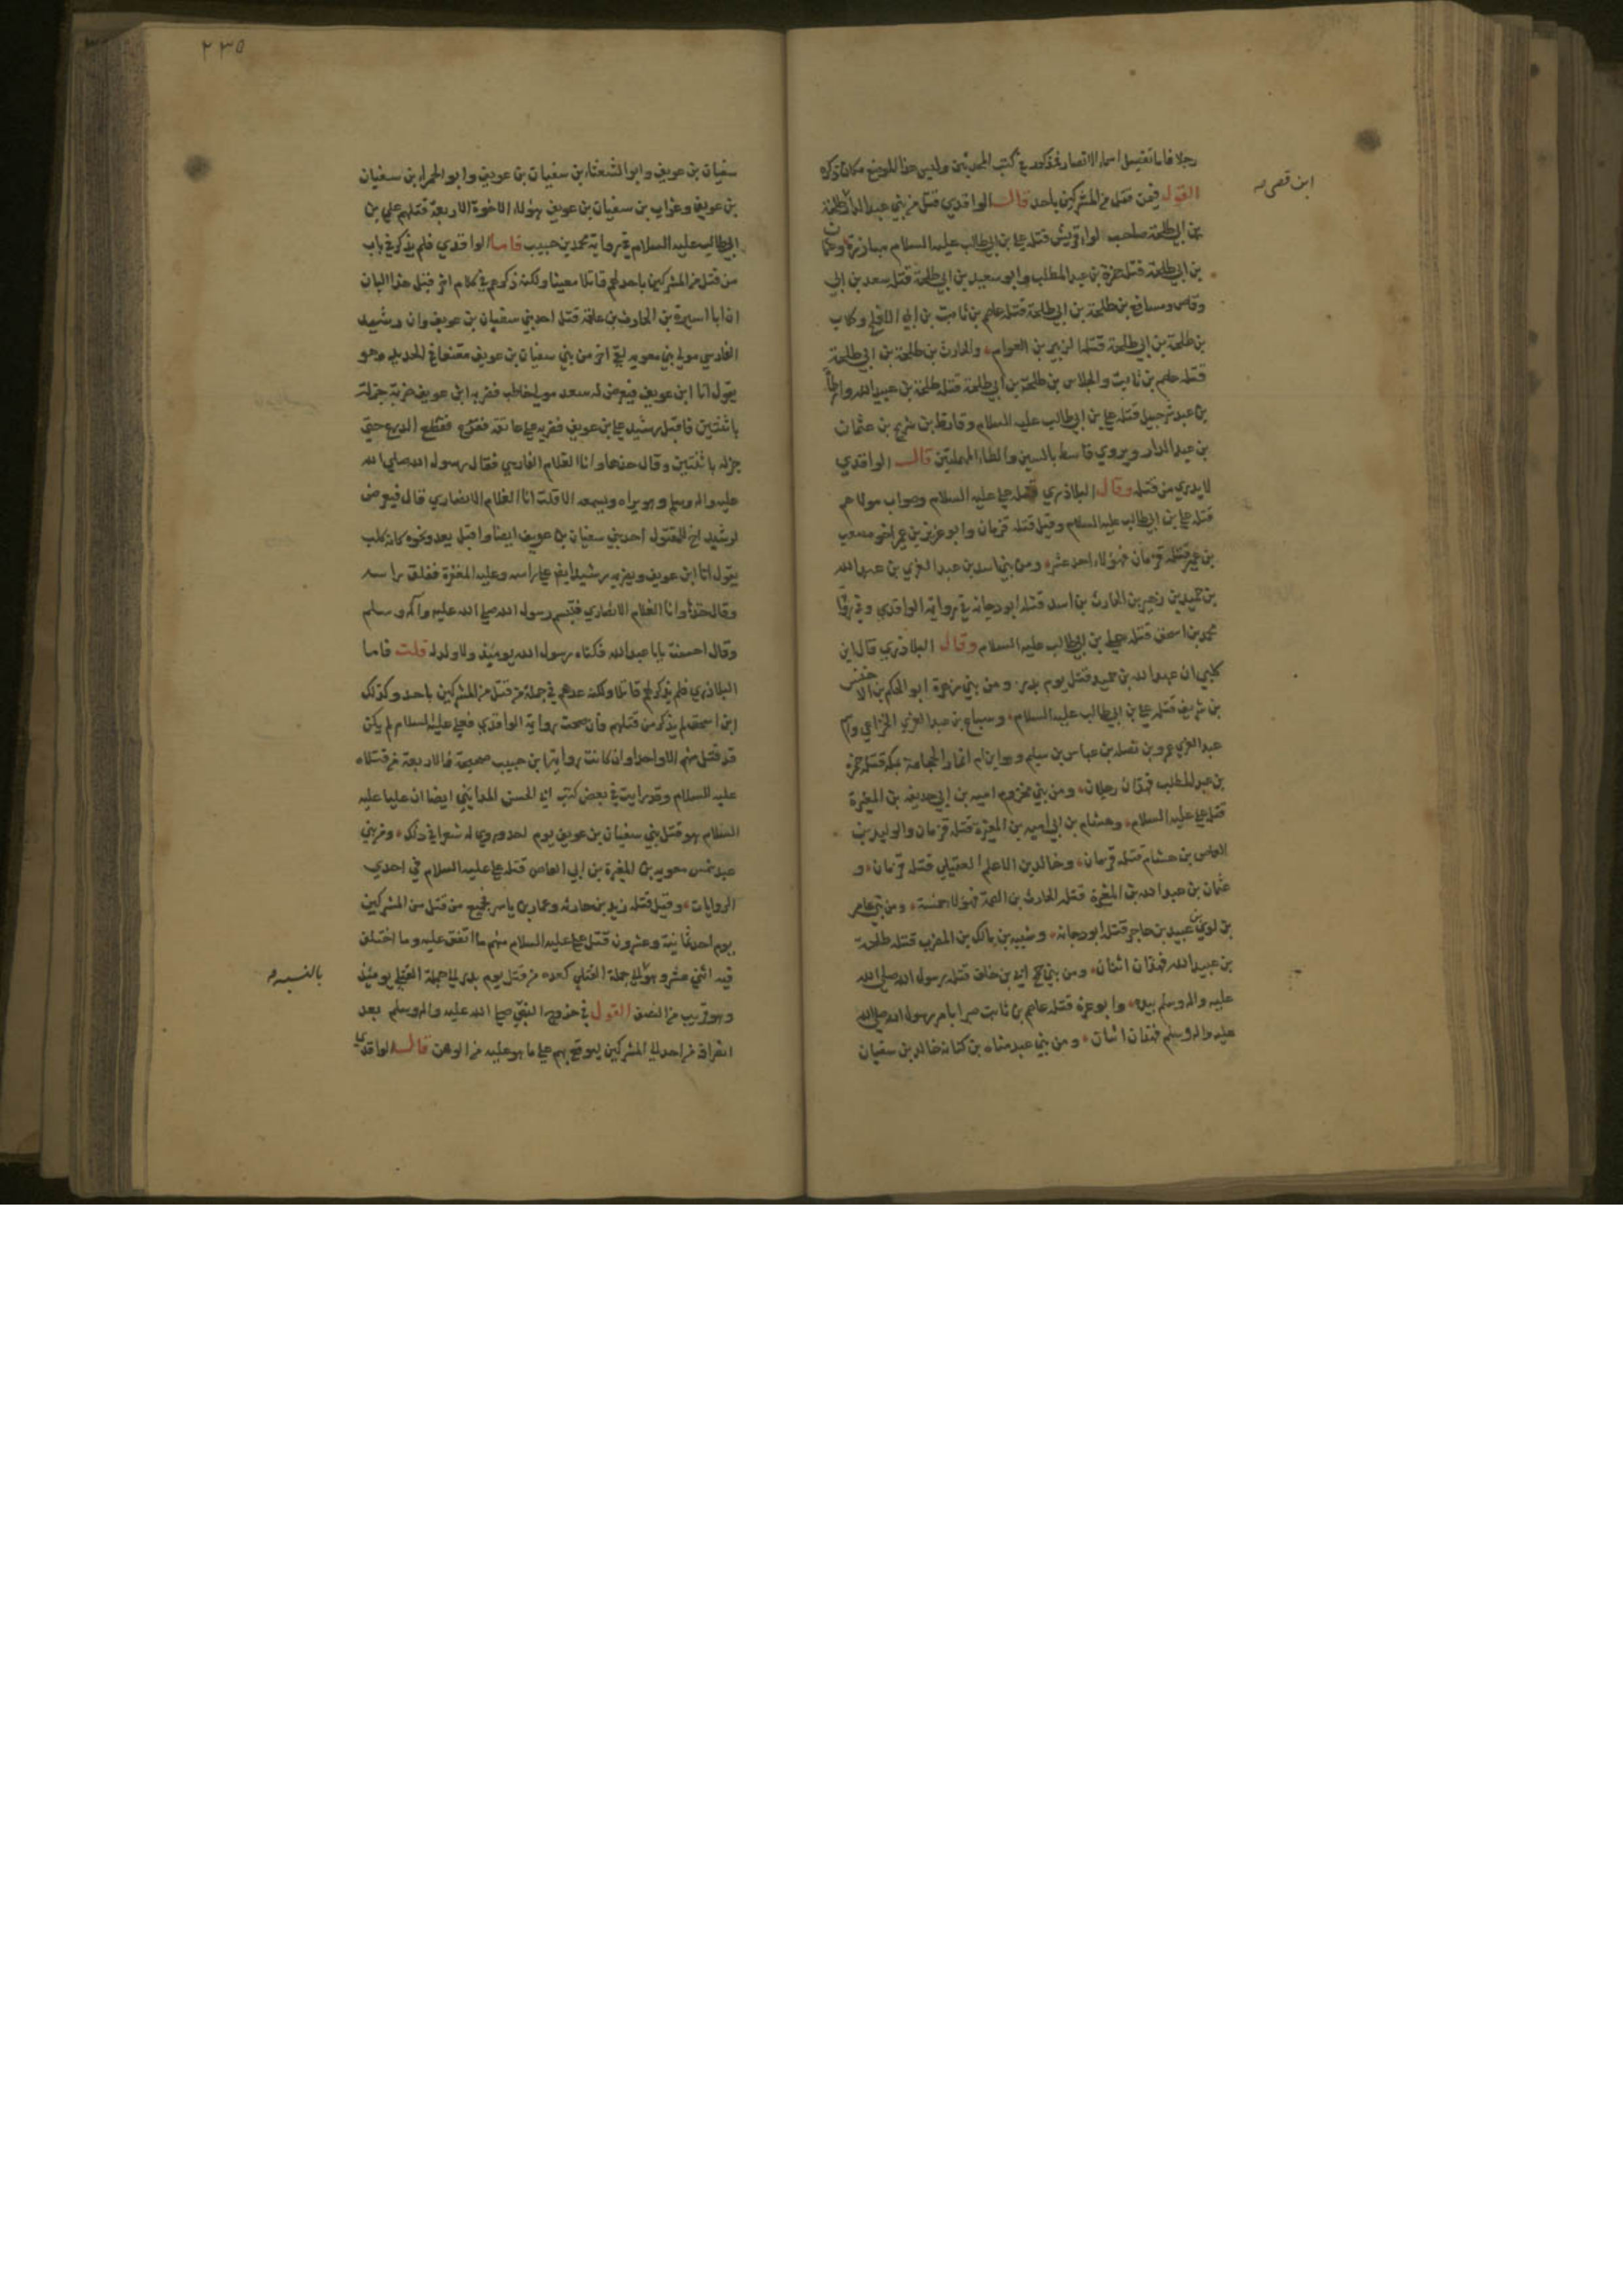 رجلا فاما تفصيل اسماء الانصار فمذكور في كتب المحدثين وليس هذا الموضع مكان ذكره
القول فيمن قتل من المشركين باحد قال الواقدي قتل من بني عبد الدار طلحة
ابن قصى صه
بن ابي طلحة صاحب لواء قريش قتله علي بن ابي طالب عليه السلام مبارزة وعثمان
بن ابي طلحة قتله حمزة بن عبد المطلب وابو سعيد بن ابي طلحة قتله سعد بن ابي
وقاص ومسافع بن طلحة بن ابي طلحة قتله عاصم بن ثابت بن ابي الاقلح وكلاب
بن طلحة بن ابي طلحة قتله الزبير بن العوام والحارث بن طلحة بن ابي طلحة
قتله عاصم بن ثابت والجلاس بن طلحة بن ابي طلحة قتله طلحة بن عبيد الله وارطاة
بن عبد شرحبيل قتله علي بن ابي طالب عليه السلام وقارظ بن شريح بن عثمان
بن عبد الدار ويروي قاسط بالسين والطاء المهملتين قال الواقدي
لا يدري من قتله وقال البلاذري قتله علي عليه السلام وصواب مولاهم
قتله علي بن ابي طالب عليه السلام وقيل قتله قزمان وابو عزيز بن عمير اخو مصعب
بن عمير قتله قزمان فهؤلاء احد عشر ومن بني اسد بن عبد العزي بن عبد الله
بن حميد بن زهير بن الحارث بن اسد قتله ابو دجانة في رواية الواقدي وفي رواية
محمد بن اسحق قتله علي بن ابي طالب عليه السلام وقال البلاذري قال ابن
كلبي ان عبد الله بن حميد قتل يوم بدر ومن بني زهرة ابو الحكم بن الاخنس
بن شريف قتله علي بن ابي طالب عليه السلام وسباع بن عبد العزي الخزاعي واسم
عبد العزي عمرو بن نضله بن عباس بن سليم وهو ابن ام انمار الحجامة بمكة قتله حمزة
بن عبد المطلب فهذان رجلان ومن بني مخزوم اميه بن ابي حذيفه بن المغيرة
قتله علي عليه السلام وهشام بن ابي اميه بن المغيرة قتله قزمان والوليد بن
العاص بن هشام قتله قزمان وخالد بن الاعلم العقيلي قتله قزمان و
عثمان بن عبد الله بن المغيرة قتله الحارث بن الصمة فهؤلاء خمسة ومن بني عامر
بن لوي عبيد بن حاجر قتله ابو دجانه وشيبه بن مالك بن المضرب قتله طلحة
بن عبيد الله فهذان اثنان ومن بني جمح ابي بن خلف قتله رسول الله صلى الله
عليه واله وسلم بيده وابو عزه قتله عاصم بن ثابت صبرا بامر رسول الله صلى الله
عليه واله وسلم فهذان اثنان ومن بني عبد مناه بن كنانه خالد بن سفيان
٢٣٥
سفيان بن عويف وابو الشعثاء بن سفيان بن عويف وابو الحمراء بن سفيان
بن عويف وغراب بن سفيان بن عويف هؤلاء الاخوة الاربعة قتلهم علي بن
ابي طالب عليه السلام في رواية محمد بن حبيب فاما الواقدي فلم يذكر في باب
من قتل من المشركين باحد لهم قاتلا معينا ولكنه ذكر في كلام اخر قبل هذا الباب
ان ابا سبرة بن الحارث بن علقمة قتل احد بني سفيان بن عويف وان رشيد
الفارسي مولي بني معويه لقي اخر من بني سفيان بن عويف مقنعا في الحديد وهو
يقول انا ابن عويف فيعرض له سعد مولي حاطب فضربه ابن عويف ضربة جزله
باثنتين فاقبل رشيد علي ابن عويف فضربه علي عاتقه فقطع الدرع حتى
جزله باثنتين وقال خذها وانا الغلام الفارسي فقال رسول الله صلي الله
عليه واله وسلم وهو يراه ويسمعه الا قلت انا الغلام الانصاري قال فيعرض
لرشيد اخ للمقتول احد بني سفيان بن عويف ايضا واقبل يعدو نحوه كانه كلب
يقول انا ابن عويف ويضربه رشيد ايضا علي راسه وعليه المغفرة ففلق راسه
وقال خذها وانا الغلام الانصاري فتبسم رسول الله صلي الله عليه واله وسلم
وقال احسنت يا ابا عبد الله فكناه رسول الله يومئذ ولا ولد له قلت فاما
البلاذري فلم يذكر لهم قاتلا ولكنه عدهم في جملة من قتل من المشركين باحد وكذلك
ابن اسحق لم يذكر من قتلهم فان صحت رواية الواقدي فعلي عليه السلام لم يكن
قد قتل منهم الا واحدا وان كانت رواية ابن حبيب صحيحة فالاربعة من قتلاه
عليه السلام وقد رايت في بعض كتب ابي الحسن المدايني ايضا ان عليا عليه
السلام هو قتل بني سفيان بن عويف يوم احد وروي له شعرا في ذلك ومن بني
عبد شمس معويه بن المغيرة بن ابي العاص قتله علي عليه السلام في احدي
الروايات وقيل قتله زيد بن حارثه وعمار بن ياسر فجميع من قتل من المشركين
يوم احد ثمانية وعشرون قتل علي عليه السلام منهم ما اتفق عليه وما اختلف
فيه اثني عشر وهو الي جملة القتلي كعده من قتل يوم بدر الي جملة القتلي يومئذ
بالنسبه صه
وهو قريب من النصف القول في خروج النبي صلى الله عليه واله وسلم بعد
انصرافه من احد الي المشركين ليوقع بهم علي ما هو عليه من الوهن قال الواقدي